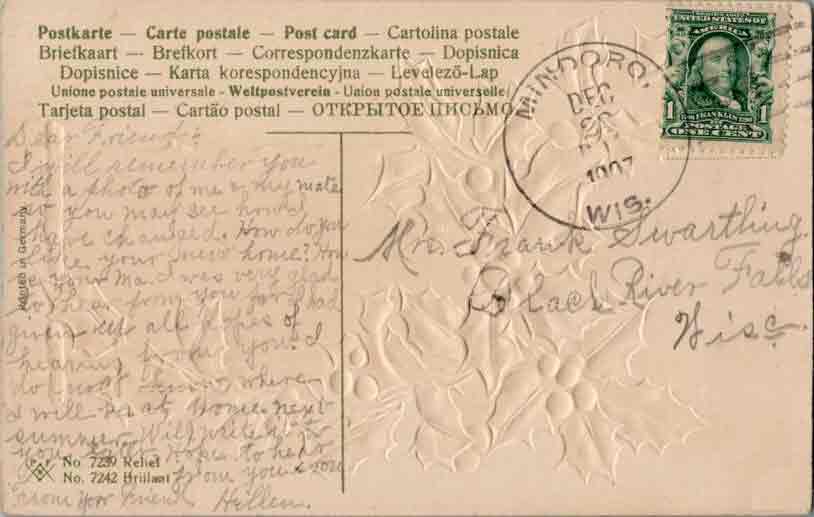 Postkarte — Carte postale — Post card — Cartolina postale
Briefkaart — Brefkort — Correspondenzkarte — Dopisnica
Dopisnice — Karta korespondencyjna — Levelező-Lap
Unione postale universale - Weltpostverein - Union postale universelle
Tarjeta postal — Cartão postal — ОТКРЫТОЕ ПИСЬМО
UNITED STATES OF
AMERICA
1 1
POSTAGE
ONE CENT
MINDORO,
DEC
1907
WIS.
Dear Friend:
I will remember you
with a photo of me & my mate
so you may see how I
have changed. How do you
like your new home? How
is your Ma. I was very glad
to hear from you for I had
given up all hopes of
hearing from you. I
do not know where
I will be at home next
summer. Will write to
you Hope to hear
from you soon
From your friend Hillen.
Mr. Frank Swartling
Black River Falls
Wisc.
Printed in Germany
No. 7239 Relief
No. 7242 Brillant